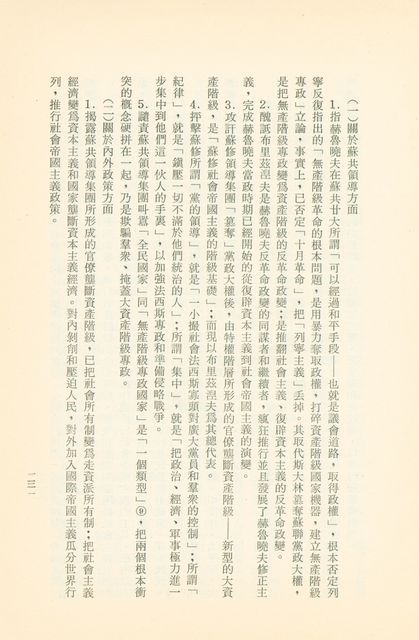 （一）關於蘇共領導方面
1.指赫魯曉夫在蘇共廿大所謂「可以經過和平手段——也就是議會道路，取得政權」，根本否定列
寧反復指出的「無產階級革命的根本問題，是用暴力奪取政權，打碎資產階級國家機器，建立無產階級
專政」立論，事實上，已否定「十月革命」，把「列寧主義」丟掉。其取代斯大林篡奪蘇聯黨政大權，
是把無產階級專政變爲資產階級的反革命政變；是推翻社會主義、復辟資本主義的反革命政變。
2.醜詆布里茲湼夫是赫魯曉夫反革命政變的同謀者和繼續者，瘋狂推行並且發展了赫魯曉夫修正主
義，完成赫魯曉夫當政時期已經開始的從復辟資本主義到社會帝國主義的演變。
3.攻訐蘇修領導集團「篡奪」黨政大權後，由特權階層所形成的官僚壟斷資產階級——新型的大資
產階級，是「蘇修社會帝國主義的階級基礎」；而現以布里茲湼夫爲其總代表。
4.抨擊蘇修所謂「黨的領導」，就是「一小撮社會法西斯寡頭對廣大黨員和羣衆的控制」；所謂「
紀律」，就是「鎭壓一切不滿於他們統治的人」；所謂「集中」，就是「把政治、經濟、軍事極力進一
步集中到他們這一伙人的手裏」，以加強法西斯專政和準備侵略戰爭。
5.譴責蘇共領導集團叫嚣「全民國家」同「無產階級專政國家」是「一個類型」⑨，把兩個根本衝
突的概念硬拼在一起，乃是欺騙羣衆、掩蓋大資產階級專政。
（二）關於內外政策方面
1.揭露蘇共領導集團所形成的官僚壟斷資產階級，已把社會所有制變爲走資派所有制；把社會主義
經濟變爲資本主義和國家壟斷資本主義經濟。對內剝削和壓迫人民，對外加入國際帝國主義瓜分世界行
列，推行社會帝國主義政策。